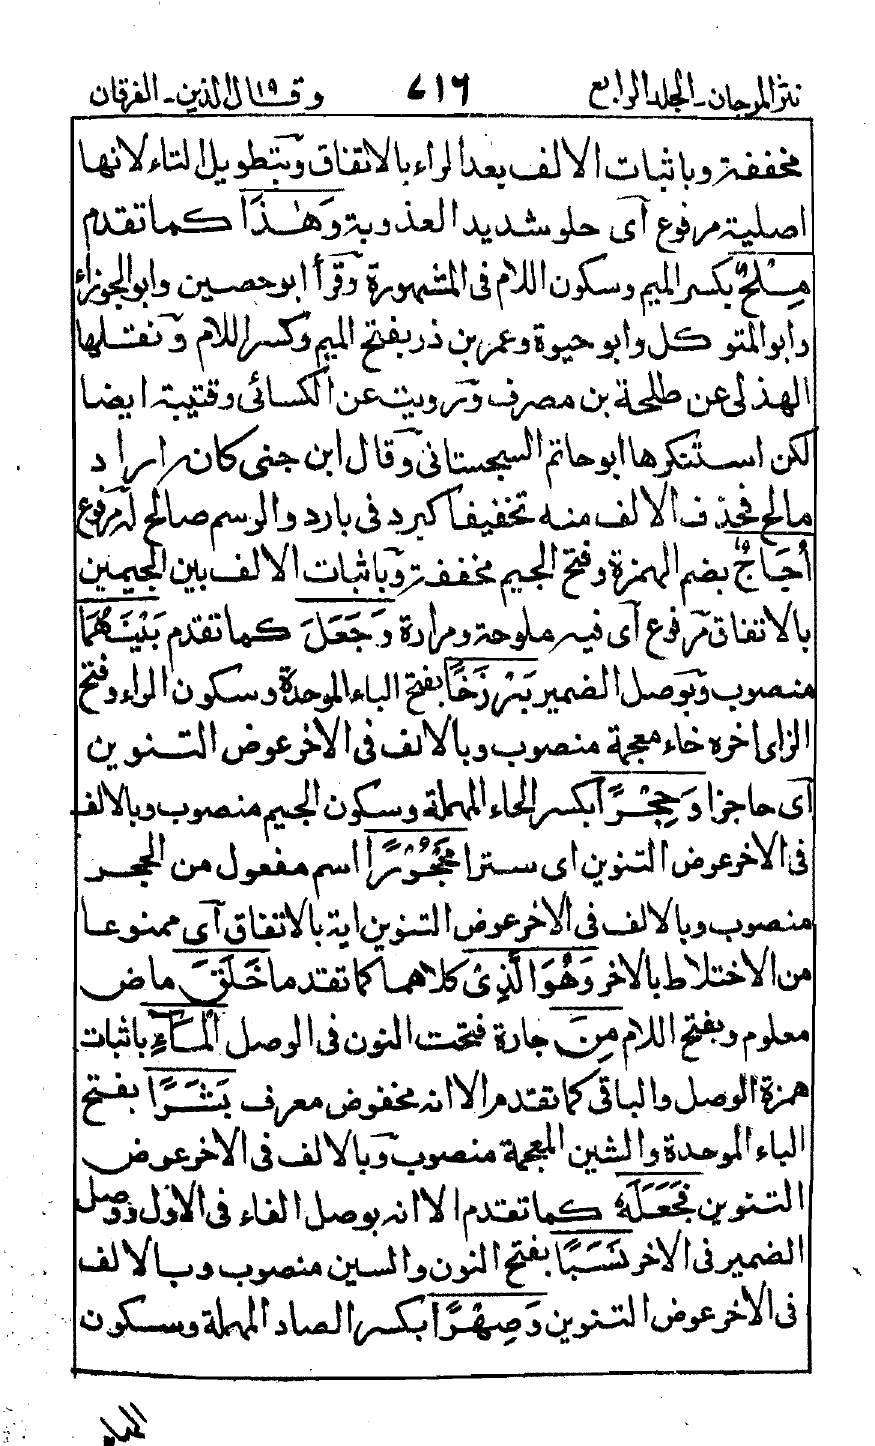 نثر المرجان ـ المجلد الرابع ٧١٦ وقال الذين ١٩ ـ الفرقان
مخففة وباثبات الالف بعد الراء بالاتفاق وبتطويل التاء لانها
اصلية مرفوع آى حلو شديد العذوبة وَهٰذَا كما تقدم
مِلْحٌ بكسر الميم وسكون اللام فى المشهورة وقرأ ابو حصين وابو الجوزاء
وابو المتوكل وابو حيوة وعمر بن ذر بفتح الميم وكسر اللام ونقلها
الهذلى عن طلحة بن مصرف ورويت عن الكسائى وقتيبة ايضا
لكن استنكرها ابو حاتم السجستانى وقال ابن جنى كان اراد
مالح فحذف الالف منه تخفيفا كبرد فى بارد والرسم صالح له مرفوع
أُجَاجٌ بضم الهمزة وفتح الجيم مخففة وباثبات الالف بين الجيمين
بالاتفاق مرفوع آى فيه ملوحة ومرارة وَجَعَلَ كما تقدم بَيْنَهُمَا
منصوب وبوصل الضمير بَرْزَخًا بفتح الباء الموحدة وسكون الراء وفتح
الزاى اخره خاء معجمة منصوب وبالالف فى الاخر عوض التنوين
آى حاجزا وَحِجْرًا بكسر الحاء المهملة وسكون الجيم منصوب وبالالف
فى الاخر عوض التنوين اى سترا مَحْجُوْرًا اسم مفعول من الحجر
منصوب وبالالف فى الاخر عوض التنوين اية بالاتفاق آى ممنوعا
من الاختلاط بالاخر وَهُوَ الَّذِىْ كلاهما كما تقدما خَلَقَ ماض
معلوم وبفتح اللام مِنَ جارة فتحت النون فى الوصل الْمَآءِ باثبات
همزة الوصل والباقى كما تقدم الا انه مخفوض معرف بَشَرًا بفتح
الباء الموحدة والشين المعجمة منصوب وبالالف فى الاخر عوض
التنوين فَجَعَلَهٗ كما تقدم الا انه بوصل الفاء فى الاول ووصل
الضمير فى الاخر نَسَبًا بفتح النون والسين منصوب وبالالف
فى الاخر عوض التنوين وَصِهْرًا بكسر الصاد المهملة وسكون